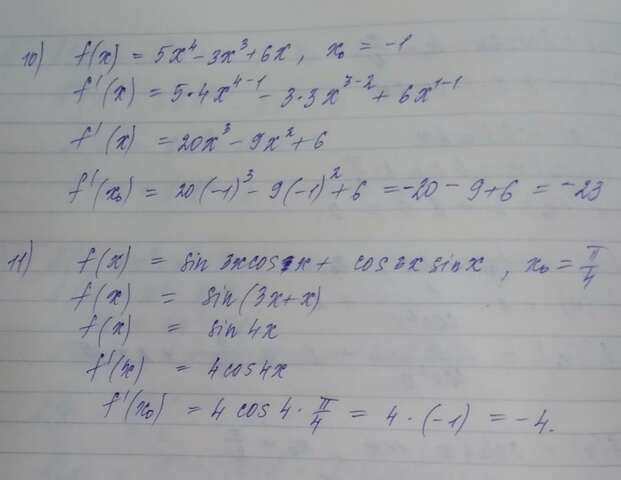 10) f(x) = 5x⁴ - 3x³ + 6x, x₀ = -1
f'(x) = 5·4x⁴⁻¹ - 3·3x³⁻² + 6x¹⁻¹
f'(x) = 20x³ - 9x² + 6
f'(x₀) = 20(-1)³ - 9(-1)² + 6 = -20 - 9 + 6 = -23
11) f(x) = sin 3x cos x + cos 3x sin x, x₀ = π/4
f(x) = sin(3x+x)
f(x) = sin 4x
f'(x) = 4 cos 4x
f'(x₀) = 4 cos 4 · π/4 = 4 · (-1) = -4.